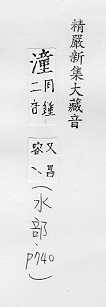 精嚴新集大藏音
潼
同鍾
二音
又昌
容丶
(水部,p740)